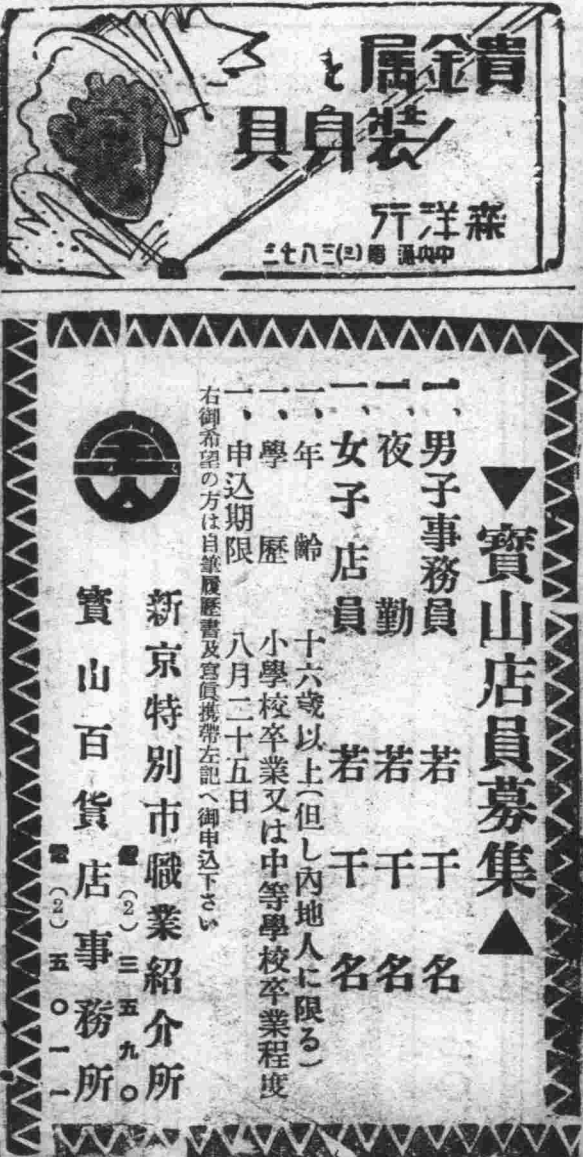 貴金属と
装身具
森洋行
中央通 電(三)三八七二
▼寳山店員募集▲
一、男子事務員 若干名
一、夜勤 若干名
一、女子店員 若干名
一、年齡 十六歳以上(但し內地人に限る)
一、學歷 小學校卒業又は中等學校卒業程度
一、申込期限 八月二十五日
右御希望の方は自筆履歷書及寫眞携帶左記へ御申込下さい
新京特別市職業紹介所
電(2)三五九〇
寳山百貨店事務所
電(2)五〇一一